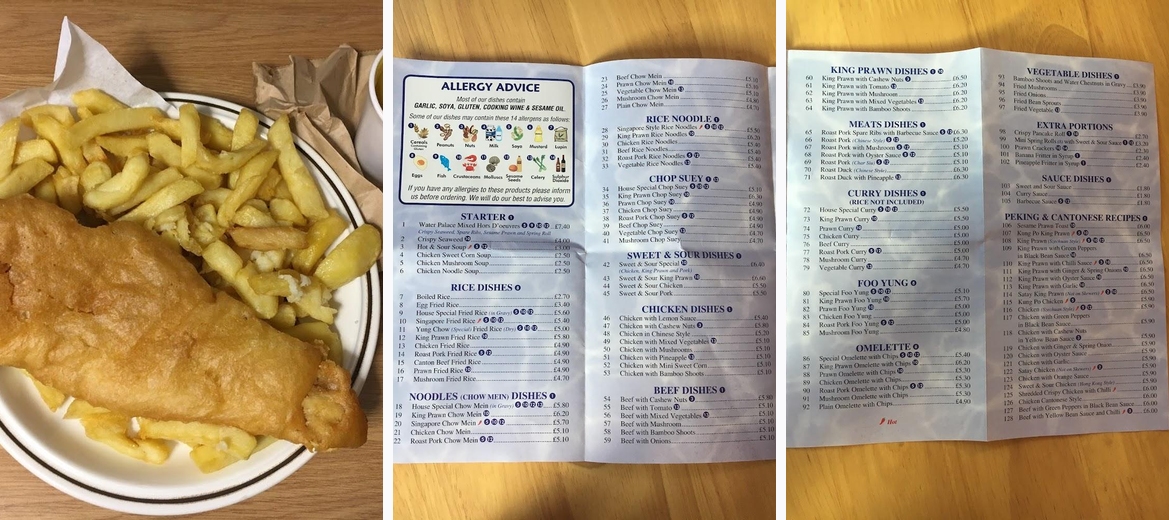 ALLERGY ADVICE
Most of our dishes contain
GARLIC, SOYA, GLUTEN, COOKING WINE & SESAME OIL.
Some of our dishes may contain these 14 allergens as follows:
Cereals
Peanuts
Nuts
Milk
Soya
Mustard
Lupin
Eggs
Fish
Crustaceans
Molluscs
Sesame Seeds
Celery
Sulphur Dioxide
If you have any allergies to these products please inform
us before ordering. We will do our best to advise you.
STARTER
1 Water Palace Mixed Hors D'oeuvres £7.40
Crispy Seaweed, Spare Ribs, Sesame Prawn and Spring Roll
2 Crispy Seaweed £4.00
3 Hot & Sour Soup
4 Chicken Sweet Corn Soup £2.50
5 Chicken Mushroom Soup £2.50
6 Chicken Noodle Soup £2.50
RICE DISHES
7 Boiled Rice £2.70
8 Egg Fried Rice £3.40
9 House Special Fried Rice (in Gravy) £5.60
10 Singapore Fried Rice £5.40
11 Yong Chow (Special) Fried Rice (Dry) £5.00
12 King Prawn Fried Rice £5.80
13 Chicken Fried Rice £4.90
14 Roast Pork Fried Rice £4.90
15 Canton Beef Fried Rice £4.90
16 Prawn Fried Rice £4.90
17 Mushroom Fried Rice £4.70
NOODLES (CHOW MEIN) DISHES
18 House Special Chow Mein (in Gravy) £5.80
19 King Prawn Chow Mein £6.20
20 Singapore Chow Mein £5.70
21 Chicken Chow Mein £5.10
22 Roast Pork Chow Mein £5.10
23 Beef Chow Mein £5.10
24 Prawn Chow Mein
25 Vegetable Chow Mein
26 Mushroom Chow Mein
27 Plain Chow Mein
RICE NOODLE
28 Singapore Style Rice Noodles
29 King Prawn Rice Noodles
30 Chicken Rice Noodles
31 Beef Rice Noodles
32 Roast Pork Rice Noodles
33 Vegetable Rice Noodles
CHOP SUEY
34 House Special Chop Suey
35 King Prawn Chop Suey
36 Prawn Chop Suey
37 Chicken Chop Suey
38 Roast Pork Chop Suey
39 Beef Chop Suey
40 Vegetable Chop Suey
41 Mushroom Chop Suey £4.70
SWEET & SOUR DISHES
42 Sweet & Sour Special £6.40
(Chicken, King Prawn and Pork)
43 Sweet & Sour King Prawn £6.60
44 Sweet & Sour Chicken £5.50
45 Sweet & Sour Pork £5.50
CHICKEN DISHES
46 Chicken with Lemon Sauce £5.40
47 Chicken with Cashew Nuts
48 Chicken in Chinese Style
49 Chicken with Mixed Vegetables
50 Chicken with Mushrooms £5.10
51 Chicken with Pineapple £5.10
52 Chicken with Mini Sweet Corn £5.10
53 Chicken with Bamboo Shoots £5.10
BEEF DISHES
54 Beef with Cashew Nuts
55 Beef with Tomato £5.10
56 Beef with Mixed Vegetables £5.10
57 Beef with Mushroom £5.10
58 Beef with Bamboo Shoots £5.10
59 Beef with Onions £5.10
KING PRAWN DISHES
60 King Prawn with Cashew Nuts £6.50
61 King Prawn with Tomato £6.20
62 King Prawn with Mushroom £6.20
63 King Prawn with Mixed Vegetables £6.20
64 King Prawn with Bamboo Shoots £6.20
MEATS DISHES
65 Roast Pork Spare Ribs with Barbecue Sauce £6.30
66 Roast Pork (Chinese Style) £5.20
67 Roast Pork with Mushroom £5.20
68 Roast Pork with Oyster Sauce £5.20
69 Roast Pork (Char Siu) £5.20
70 Roast Duck (Chinese Style) £6.30
71 Roast Duck with Pineapple £6.30
CURRY DISHES
(RICE NOT INCLUDED)
72 House Special Curry £5.50
73 King Prawn Curry
74 Prawn Curry £5.00
75 Chicken Curry £5.00
76 Beef Curry £5.00
77 Roast Pork Curry £5.00
78 Mushroom Curry £4.70
79 Vegetable Curry £4.70
FOO YUNG
80 Special Foo Yung £5.10
81 King Prawn Foo Yung £5.70
82 Prawn Foo Yung £5.00
83 Chicken Foo Yung £5.00
84 Roast Pork Foo Yung £5.00
85 Mushroom Foo Yung £4.80
OMELETTE
86 Special Omelette with Chips £5.40
87 King Prawn Omelette with Chips £6.10
88 Prawn Omelette with Chips £5.30
89 Chicken Omelette with Chips £5.30
90 Roast Pork Omelette with Chips £5.30
91 Mushroom Omelette with Chips £5.30
92 Plain Omelette with Chips £4.90
Hot
VEGETABLE DISHES
93 Bamboo Shoots and Water Chestnuts in Gravy £3.90
94 Fried Mushrooms £3.90
95 Fried Onions £3.90
96 Fried Bean Sprouts £3.90
97 Fried Vegetable £3.90
EXTRA PORTIONS
98 Crispy Pancake Roll
99 Mini Spring Rolls with Sweet & Sour Sauce
100 Prawn Crackers
101 Banana Fritter in Syrup £2.40
102 Pineapple Fritter in Syrup £2.40
SAUCE DISHES
103 Sweet and Sour Sauce
104 Curry Sauce £1.80
105 Barbecue Sauce £1.80
PEKING & CANTONESE RECIPES
106 Sesame Prawn Toast
107 Kung Po King Prawn
108 King Prawn £6.50
109 King Prawn with Green Peppers
in Black Bean Sauce £6.50
110 King Prawn with Chilli Sauce
111 King Prawn with Ginger & Spring Onions
112 King Prawn with Oyster Sauce
113 King Prawn with Garlic
114 Satay King Prawn
115 Kung Po Chicken
116 Chicken
117 Chicken with Green Peppers
in Black Bean Sauce £5.90
118 Chicken with Cashew Nuts
in Yellow Bean Sauce
119 Chicken with Ginger & Spring Onion
120 Chicken with Oyster Sauce
121 Chicken with Garlic
122 Satay Chicken
123 Chicken with Orange Sauce
124 Sweet & Sour Chicken (Hong Kong Style)
125 Shredded Crispy Chicken with Chilli
126 Chicken Cantonese Style
127 Beef with Green Peppers in Black Bean Sauce
128 Beef with Yellow Bean Sauce and Chilli £6.00